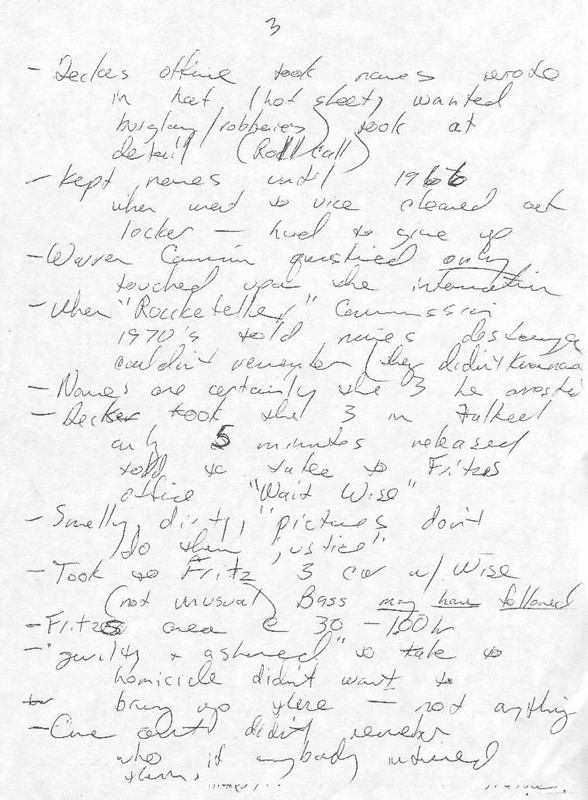 3
- Deckers office took names wrote
in hat (hot sheet, wanted
burglary/robberies) took at
detail (Roll call)
- Kept names until 1966
when went to vice cleaned out
locker - had to give up
- Warren Comm questioned only
touched upon the information
- when "Rockefeller" Commission
1970's told names
couldn't remember (they didn't
- Names are certainly the 3 he
- Decker took the 3 in talked
only 5 minutes released
told to take to Fritzs
office "Wait Wise"
- Smelly, dirty, "pictures don't
do them justice"
- Took to Fritz 3 car w/ Wise
(not unusual) Bass may have followed
- Fritzs area @ 30 - 1:00 hr
- "guilty & ashamed" to take to
homicide didn't want to
bring up there - not anything
- didn't remember
who if anybody
them.